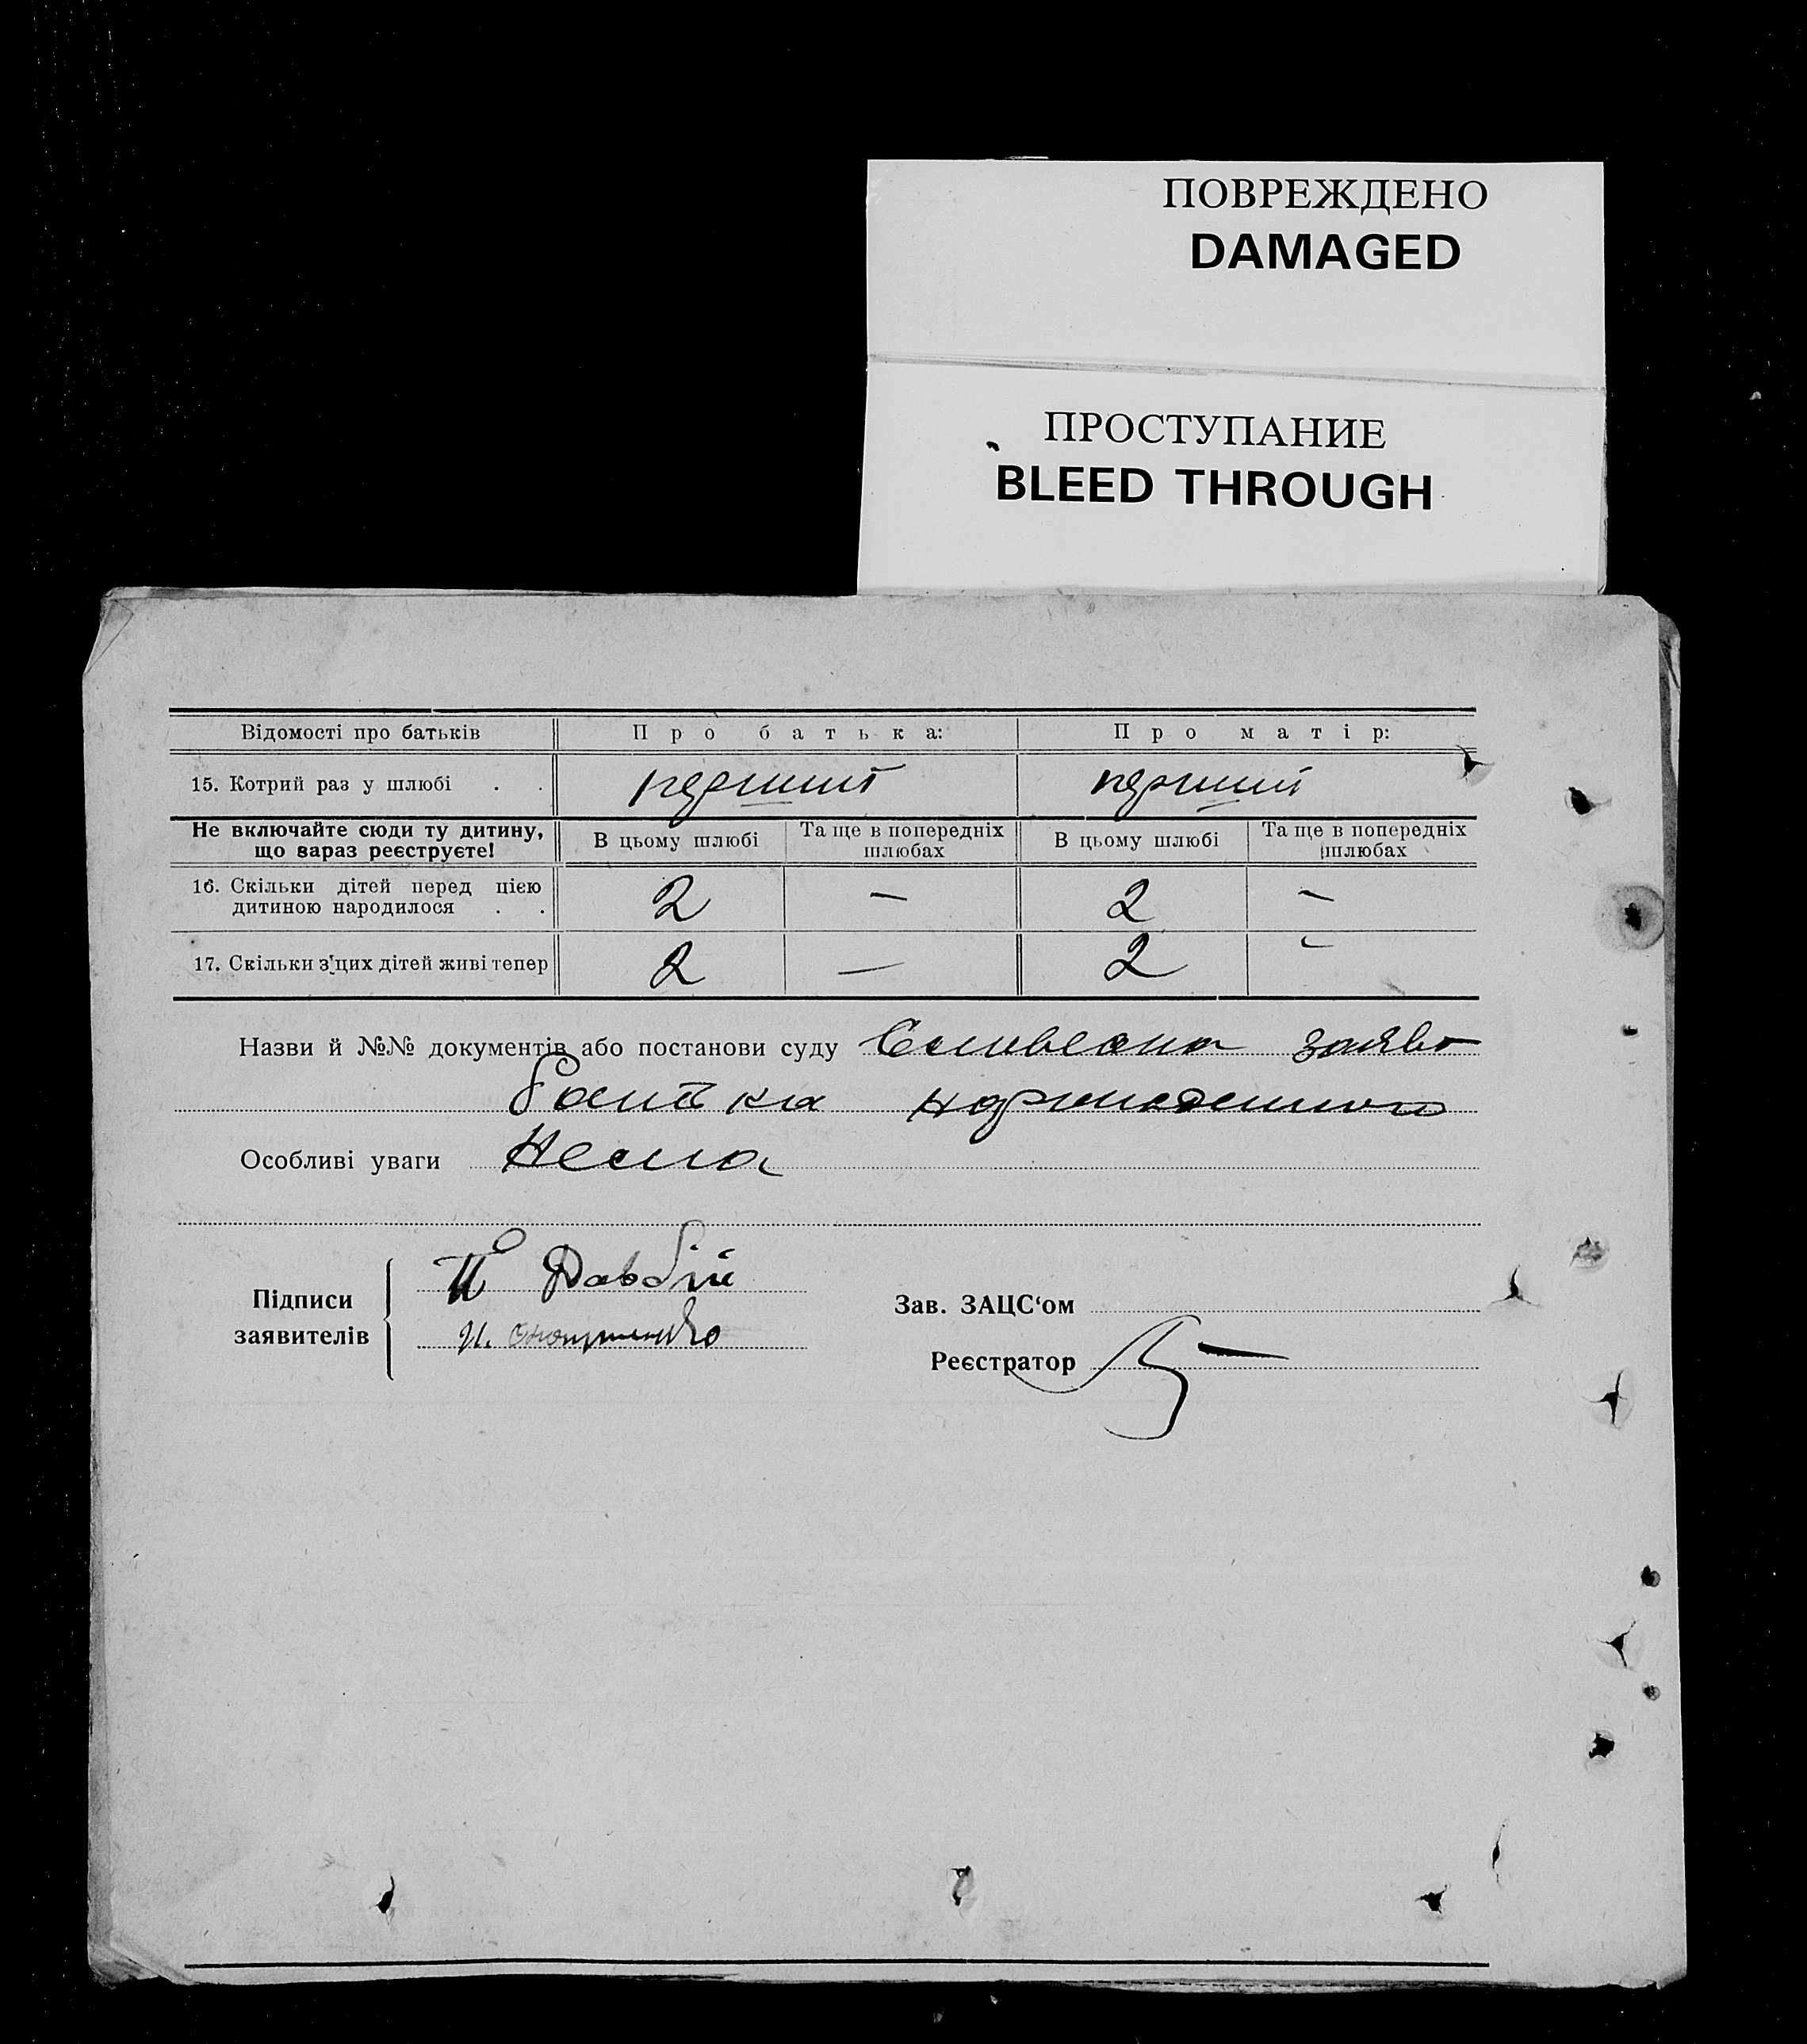 ПОВРЕЖДЕНО
DAMAGED
ПРОСТУПАНИЕ
BLEED THROUGH
Відомості про батьків Про батька: Про матір:
15. Котрий раз у шлюбі . . перший перший
Не включайте сюди ту дитину, що зараз реєструєте! В цьому шлюбі Та ще в попередніх шлюбах В цьому шлюбі Та ще в попередніх шлюбах
16. Скільки дітей перед цією
дитиною народилося . . 2 — 2 —
17. Скільки з'цих дітей живі тепер 2 — 2 -
Назви й №№ документів або постанови суду Словесна заява
батька
Особливі уваги Нема
Підписи
заявителів
Зав. ЗАЦС‘ом
Реєстратор